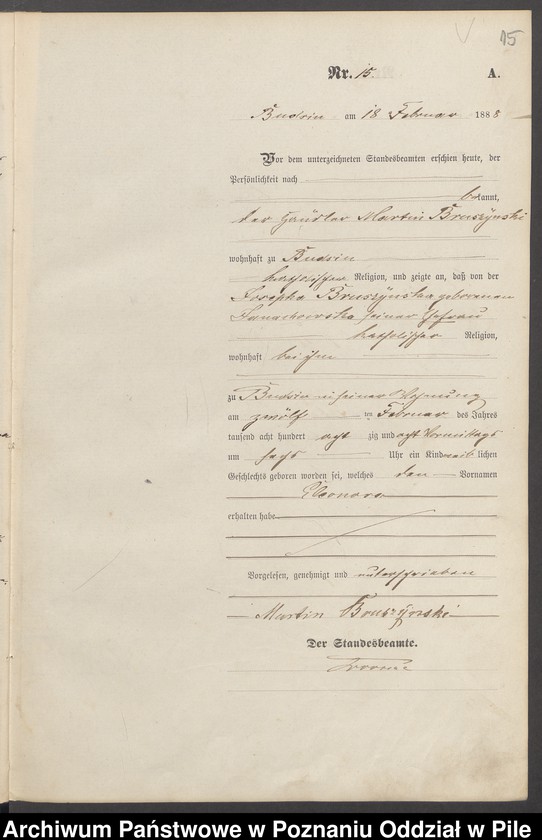 15
Nr. 15. A.
Budsin am 18 Februar 1888
Vor dem unterzeichneten Standesbeamten erschien heute, der
Persönlichkeit nach
bekannt,
der Händler Martin Bruszynski
wohnhaft zu Budsin
katholischer Religion, und zeigte an, daß von der
Josepha Bruszynska geborenen
seiner Ehefrau
katholischer Religion,
wohnhaft bei ihm
zu Budsin in seiner Wohnung
am zwölf ten Februar des Jahres
tausend acht hundert acht zig und acht Vormittags
um sechs Uhr ein Kind weiblichen
Geschlechts geboren worden sei, welches den Vornamen
Eleonora
erhalten habe
Vorgelesen, genehmigt und unterschrieben
Martin Bruszynski
Der Standesbeamte.
Archiwum Państwowe w Poznaniu Oddział w Pile